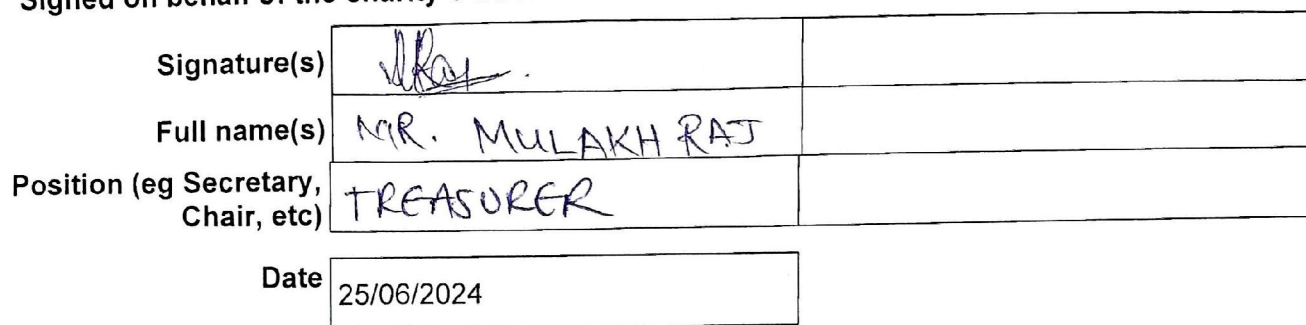 Signed on behalf of the charity
Signature(s)
Full name(s) MR. MULAKH RAJ
Position (eg Secretary, TREASURER
Chair, etc)
Date 25/06/2024